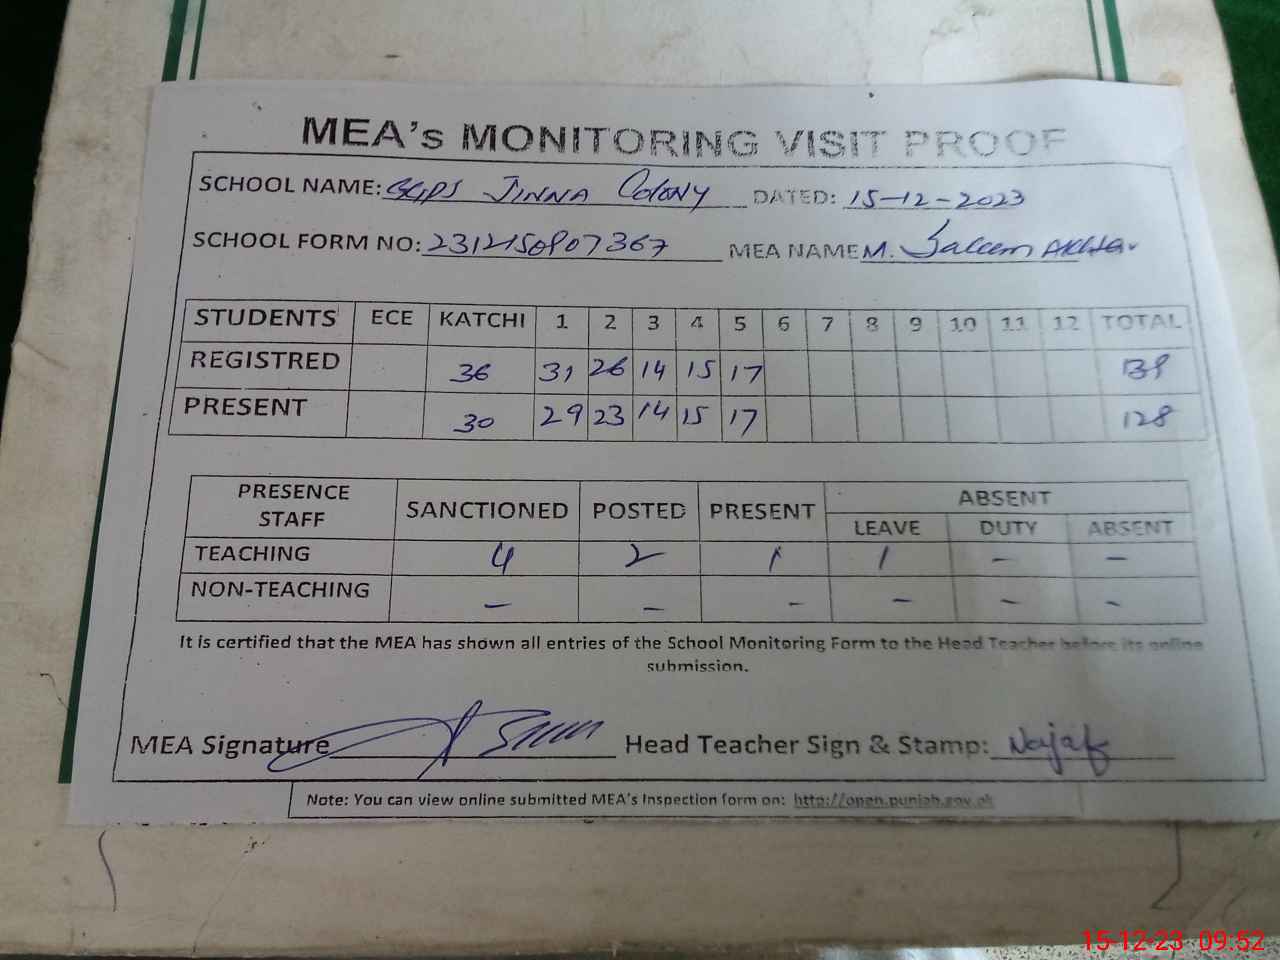 MEA's MONITORING VISIT PROOF
SCHOOL NAME: GGPS JINNA COLONY DATED: 15-12-2023
SCHOOL FORM NO: 2312150907367 MEA NAME M. Saleem Akhtar
STUDENTS ECE KATCHI 1 2 3 4 5 6 7 8 9 10 11 12 TOTAL
REGISTRED 36 31 26 14 15 17 139
PRESENT 30 29 23 14 15 17 128
PRESENCE STAFF SANCTIONED POSTED PRESENT ABSENT
LEAVE DUTY ABSENT
TEACHING 4 2 1 1 - -
NON-TEACHING - - - - - -
It is certified that the MEA has shown all entries of the School Monitoring Form to the Head Teacher before its online
submission.
MEA Signature Head Teacher Sign & Stamp: Najaf
Note: You can view online submitted MEA's Inspection form on: http://open.punjab.gov.pk
15-12-23 09:52